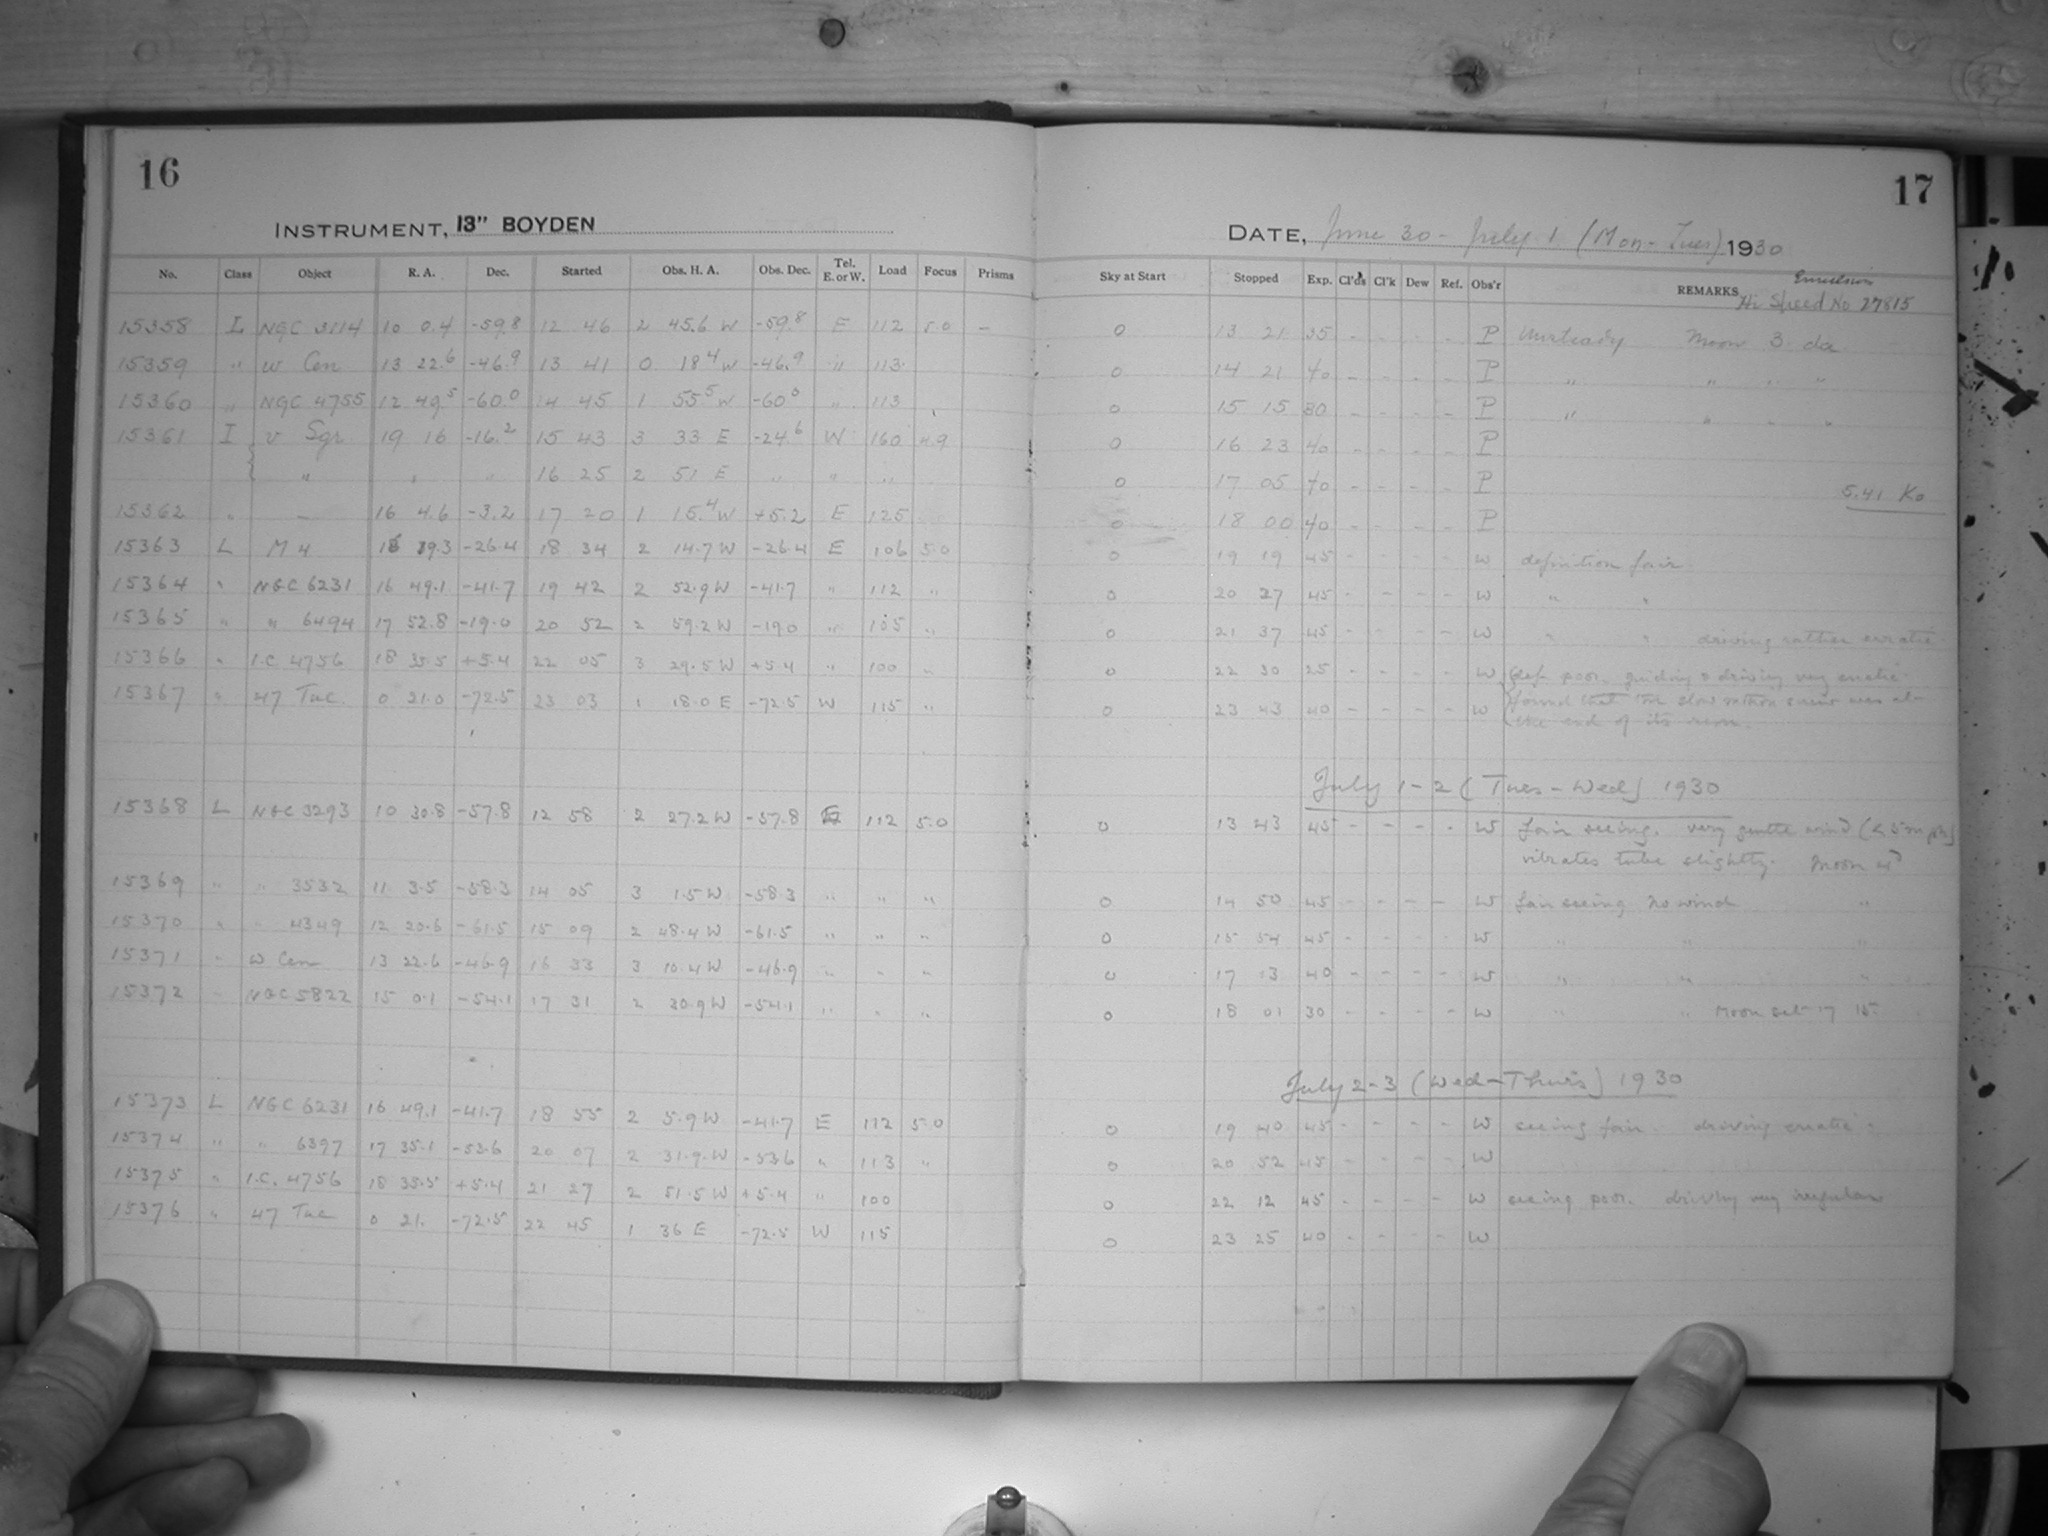 16
INSTRUMENT, 13" BOYDEN
No. Class Object R. A. Dec. Started Obs. H. A. Obs. Dec. Tel. E. or W. Load Focus Prisms
15358 L NGC 3114 10 0.4 -59.8 12 46 2 45.6 W -59.8 E 112 5.0 -
15359 " w Cen 13 22.6 -46.9 13 41 0 18.4 W -46.9 " 113
15360 " NGC 4755 12 49.5 -60.0 14 45 1 55.5 W -60.0 " 113
15361 I v Sgr 19 16 -16.2 15 43 3 33 E -24.6 W 160 4.9
" " " 16 25 2 51 E " " "
15362 " - 16 4.6 -3.2 17 20 1 15.4 W +5.2 E 125
15363 L M 4 16 19.3 -26.4 18 34 2 14.7 W -26.4 E 106 5.0
15364 " NGC 6231 16 49.1 -41.7 19 42 2 52.9 W -41.7 " 112 "
15365 " " 6494 17 52.8 -19.0 20 52 2 59.2 W -19.0 " 105 "
15366 " I.C. 4756 18 35.5 +5.4 22 05 3 29.5 W +5.4 " 100 "
15367 " 47 Tuc. 0 21.0 -72.5 23 03 1 18.0 E -72.5 W 115 "
15368 L NGC 3293 10 30.8 -57.8 12 58 2 27.2 W -57.8 E 112 5.0
15369 " " 3532 11 3.5 -58.3 14 05 3 1.5 W -58.3 " " "
15370 " " 4349 12 20.6 -61.5 15 09 2 48.4 W -61.5 " " "
15371 " w Cen 13 22.6 -46.9 16 33 3 10.4 W -46.9 " " "
15372 " NGC 5822 15 0.1 -54.1 17 31 2 30.9 W -54.1 " " "
15373 L NGC 6231 16 49.1 -41.7 18 55 2 5.9 W -41.7 E 112 5.0
15374 " " 6397 17 35.1 -53.6 20 07 2 31.9 W -53.6 " 113 "
15375 " I.C. 4756 18 35.5 +5.4 21 27 2 51.5 W +5.4 " 100
15376 " 47 Tuc 0 21. -72.5 22 45 1 36 E -72.5 W 115
17
DATE, June 30 - July 1 (Mon - Tues) 1930
Sky at Start Stopped Exp. Cl'ds Cl'k Dew Ref. Obs'r REMARKS Emulsion
Hi Speed No 27815
0 13 21 35 - - - - P Unsteady Moon 3 da
0 14 21 40 - - - - P " " " "
0 15 15 30 - - - - P " " " "
0 16 23 40 - - - - P
0 17 05 40 - - - - P
5.41 K0
0 18 00 40 - - - - P
0 19 19 45 - - - - W definition fair
0 20 27 45 - - - - W " "
0 21 37 45 - - - - W " " driving rather erratic
0 22 30 25 - - - - W Def. poor. guiding & driving very erratic
0 23 43 40 - - - - W found that slow motion screw was at
the end of its run.
July 1-2 (Tues - Wed) 1930
0 13 43 45 - - - - W fair seeing. very gentle wind (< 5 mph)
vibrates tube slightly. Moon
0 14 50 45 - - - - W fair seeing no wind "
0 15 54 45 - - - - W " " "
0 17 13 40 - - - - W " " "
0 18 01 30 - - - - W " " Moon set 17 15
July 2-3 (Wed - Thurs) 1930
0 19 40 45 - - - - W seeing fair. driving erratic
0 20 52 45 - - - - W
0 22 12 45 - - - - W seeing poor. driving very irregular
0 23 25 40 - - - - W